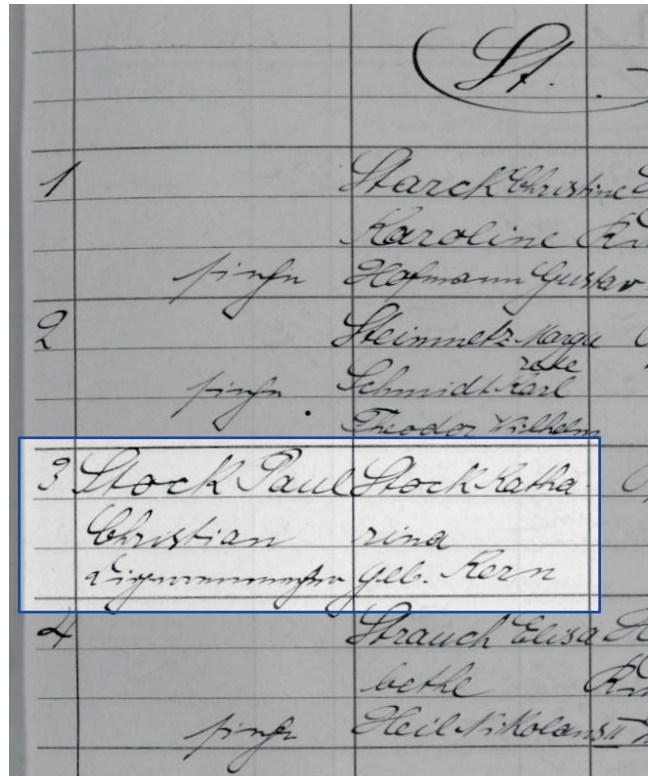 St.
1 Starck Christine
Karoline
siehe Hofmann Gustav
2 Steinmetz Marga
rete
siehe Schmidt Karl
Theodor Wilhelm
3 Stock Paul Stock Katha
Christian rina
Zigarrenmacher geb. Kern
4 Strauch Elisa
bethe
siehe Heil Nikolaus II